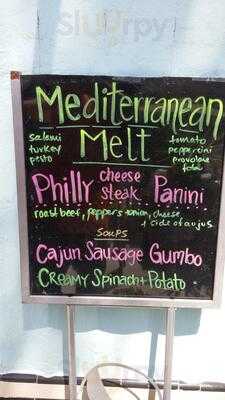 Sluurpy
Mediterranean
Melt
salami
turkey
pesto
tomato
pepperoni
provolone
feta
Philly cheese steak Panini
roast beef, peppers + onion, cheese,
+ side of au jus
SOUPS
Cajun Sausage Gumbo
Creamy Spinach + Potato